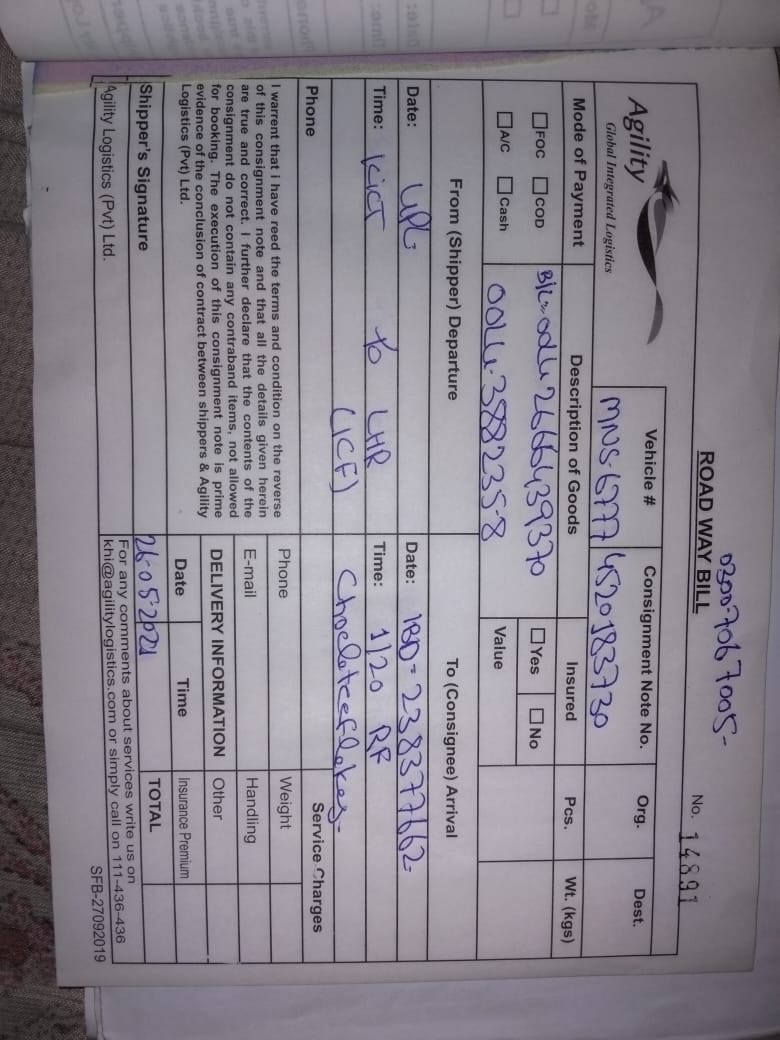 0300-7067005-
ROAD WAY BILL
No. 14891
Agility
Global Integrated Logistics
Vehicle #
Consignment Note No.
Org.
Dest.
MNS-6777
4520183730
Mode of Payment
Description of Goods
Insured
Pcs.
Wt. (kgs)
FOC
COD
B/L- OOLU 2666439370
Yes
No
A/C
Cash
OOLU-388235-8
Value
From (Shipper) Departure
To (Consignee) Arrival
Date:
Date: IBD- 238377662
Time: KICT To LHR
Time: 1/20 RF
(ICF)
Chocletceflekes-
Phone
Service Charges
I warrent that i have reed the terms and condition on the reverse
of this consignment note and that all the details given herein
are true and correct. I further declare that the contents of the
consignment do not contain any contraband items, not allowed
for booking. The execution of this consignment note is prime
evidence of the conclusion of contract between shippers & Agility
Logistics (Pvt) Ltd.
Phone
Weight
E-mail
Handling
DELIVERY INFORMATION
Other
Date
Time
Insurance Premium
Shipper's Signature
26-05-2021
TOTAL
Agility Logistics (Pvt) Ltd.
For any comments about services write us on
khi@agilitylogistics.com or simply call on 111-436-436
SFB-27092019